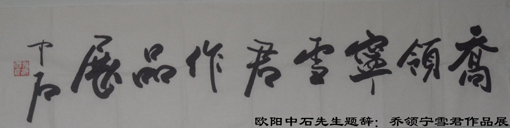 喬領寧雪君作品展
中石
欧阳中石先生题辞：乔领宁雪君作品展